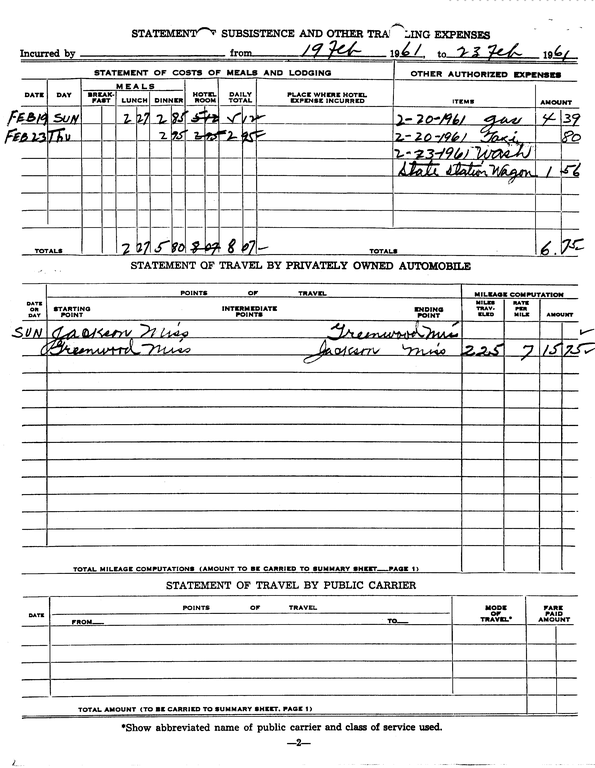 STATEMENT SUBSISTENCE AND OTHER EXPENSES
Incurred by from 19 Feb 1961, to 23 Feb 1961
STATEMENT OF COSTS OF MEALS AND LODGING OTHER AUTHORIZED EXPENSES
DATE DAY MEALS BREAK-FAST LUNCH DINNER HOTEL ROOM DAILY TOTAL PLACE WHERE HOTEL EXPENSE INCURRED ITEMS AMOUNT
FEB 19 SUN 2 27 2 85 5 12 2-20-1961 gas 4 39
FEB 23 Thu 2 95 2 95 2 95 2-20-1961 Taxi 80
2-23-1961 Wash
State Station Wagon 1 56
TOTALS 2 27 5 80 8 07 8 07 TOTALS 6.75
STATEMENT OF TRAVEL BY PRIVATELY OWNED AUTOMOBILE
POINTS OF TRAVEL MILEAGE COMPUTATION
DATE OR DAY STARTING POINT INTERMEDIATE POINTS ENDING POINT MILES TRAV-ELED RATE PER MILE AMOUNT
SUN Jackson Miss Greenwood Miss
Greenwood Miss Jackson Miss 225 7 15 75
TOTAL MILEAGE COMPUTATIONS (AMOUNT TO BE CARRIED TO SUMMARY SHEET PAGE 1)
STATEMENT OF TRAVEL BY PUBLIC CARRIER
DATE POINTS OF TRAVEL MODE OF TRAVEL* FARE PAID AMOUNT
FROM TO
TOTAL AMOUNT (TO BE CARRIED TO SUMMARY SHEET, PAGE 1)
*Show abbreviated name of public carrier and class of service used.
—2—